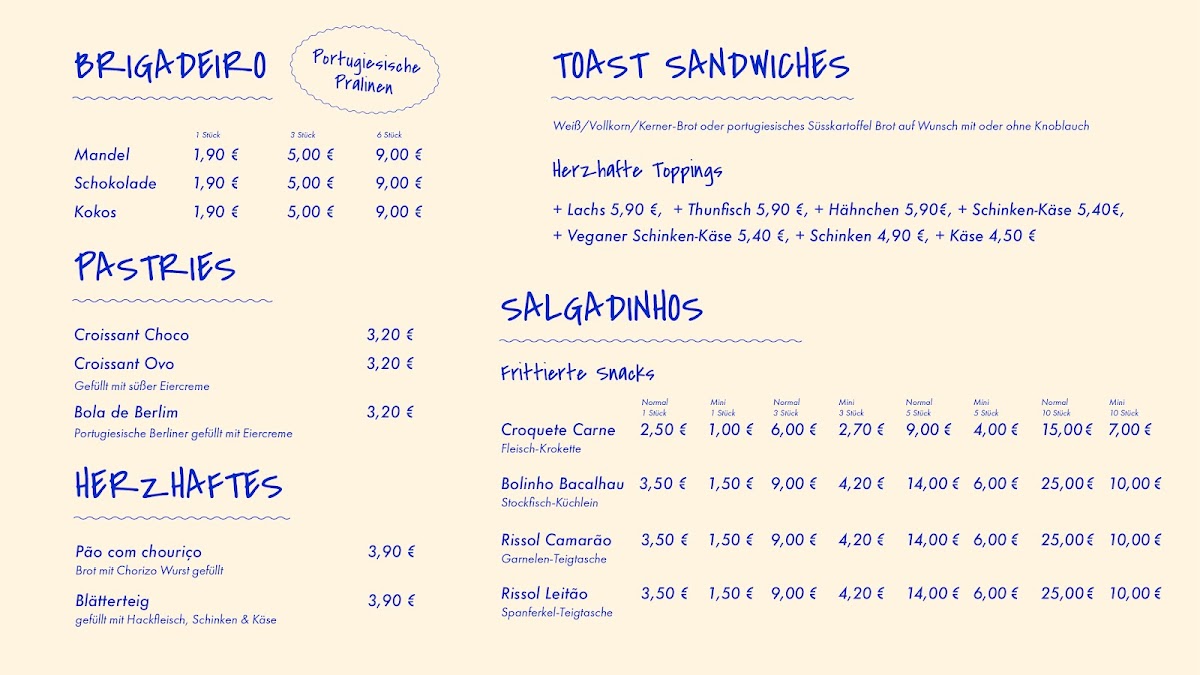 BRIGADEIRO
Portugiesische
Pralinen
1 Stück 3 Stück 6 Stück
Mandel 1,90 € 5,00 € 9,00 €
Schokolade 1,90 € 5,00 € 9,00 €
Kokos 1,90 € 5,00 € 9,00 €
PASTRIES
Croissant Choco 3,20 €
Croissant Ovo 3,20 €
Gefüllt mit süßer Eiercreme
Bola de Berlim 3,20 €
Portugiesische Berliner gefüllt mit Eiercreme
HERZHAFTES
Pão com chouriço 3,90 €
Brot mit Chorizo Wurst gefüllt
Blätterteig 3,90 €
gefüllt mit Hackfleisch, Schinken & Käse
TOAST SANDWICHES
Weiß/Vollkorn/Kerner-Brot oder portugiesisches Süsskartoffel Brot auf Wunsch mit oder ohne Knoblauch
Herzhafte Toppings
+ Lachs 5,90 €, + Thunfisch 5,90 €, + Hähnchen 5,90€, + Schinken-Käse 5,40€,
+ Veganer Schinken-Käse 5,40 €, + Schinken 4,90 €, + Käse 4,50 €
SALGADINHOS
Frittierte Snacks
Normal Mini Normal Mini Normal Mini Normal Mini
1 Stück 1 Stück 3 Stück 3 Stück 5 Stück 5 Stück 10 Stück 10 Stück
Croquete Carne 2,50 € 1,00 € 6,00 € 2,70 € 9,00 € 4,00 € 15,00 € 7,00 €
Fleisch-Krokette
Bolinho Bacalhau 3,50 € 1,50 € 9,00 € 4,20 € 14,00 € 6,00 € 25,00 € 10,00 €
Stockfisch-Küchlein
Rissol Camarão 3,50 € 1,50 € 9,00 € 4,20 € 14,00 € 6,00 € 25,00 € 10,00 €
Garnelen-Teigtasche
Rissol Leitão 3,50 € 1,50 € 9,00 € 4,20 € 14,00 € 6,00 € 25,00 € 10,00 €
Spanferkel-Teigtasche